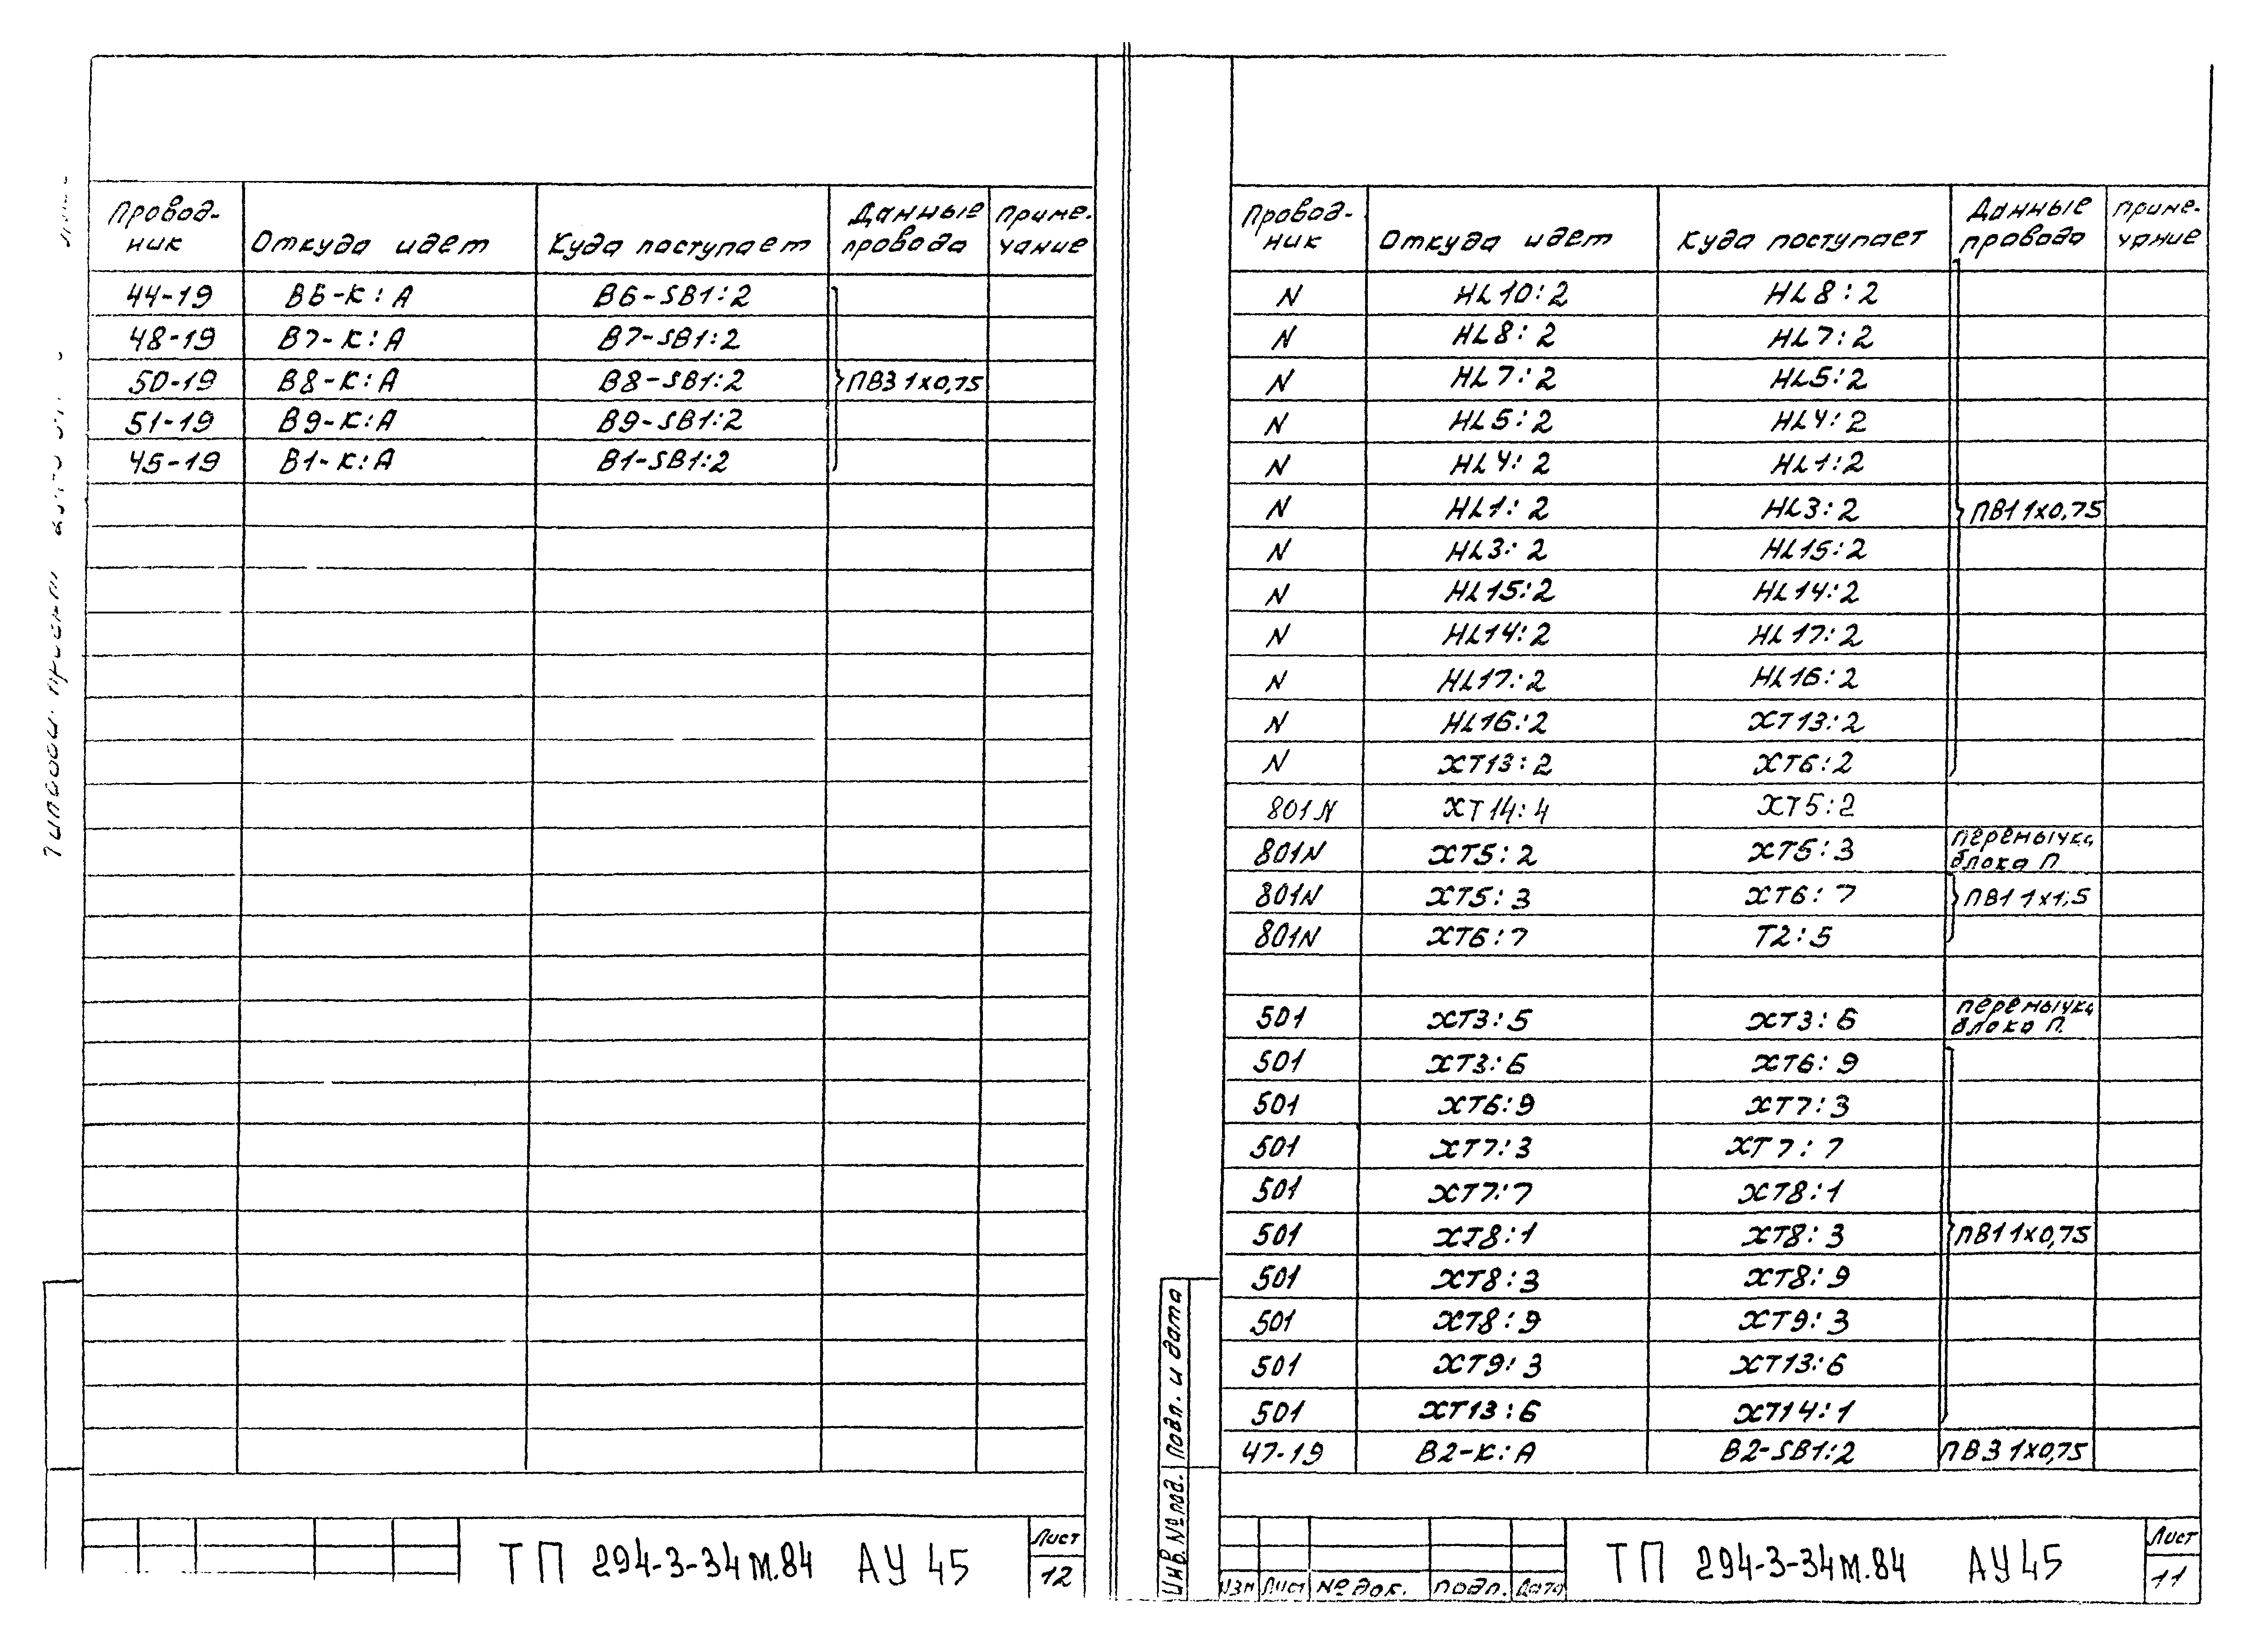 Провод-
ник
Откуда идет
Куда поступает
Данные
провода
Приме-
чание
44-19 В6-К:А В6-SB1:2
48-19 В7-К:А В7-SB1:2
50-19 В8-К:А В8-SB1:2 ПВ3 1х0,75
51-19 В9-К:А В9-SB1:2
45-19 В1-К:А В1-SB1:2
ТП 294-3-34м.84 АУ 45
Лист
12
Провод-
ник
Откуда идет
Куда поступает
Данные
провода
Приме-
чание
N HL10:2 HL8:2
N HL8:2 HL7:2
N HL7:2 HL5:2
N HL5:2 HL4:2
N HL4:2 HL1:2
N HL1:2 HL3:2 ПВ1 1х0,75
N HL3:2 HL15:2
N HL15:2 HL14:2
N HL14:2 HL17:2
N HL17:2 HL16:2
N HL16:2 ХТ13:2
N ХТ13:2 ХТ6:2
801N ХТ14:4 ХТ5:2
801N ХТ5:2 ХТ5:3 перемычка
блока П
801N ХТ5:3 ХТ6:7 ПВ1 1х1,5
801N ХТ6:7 Т2:5
501 ХТ3:5 ХТ3:6 перемычка
блока П.
501 ХТ3:6 ХТ6:9
501 ХТ6:9 ХТ7:3
501 ХТ7:3 ХТ7:7
501 ХТ7:7 ХТ8:1
501 ХТ8:1 ХТ8:3 ПВ1 1х0,75
501 ХТ8:3 ХТ8:9
501 ХТ8:9 ХТ9:3
501 ХТ9:3 ХТ13:6
501 ХТ13:6 ХТ14:1
47-19 В2-К:А В2-SB1:2 ПВ3 1х0,75
Инв.№под. Подп. и дата
Изм Лист № док. подп. Дата
ТП 294-3-34м.84 АУ45
Лист
11